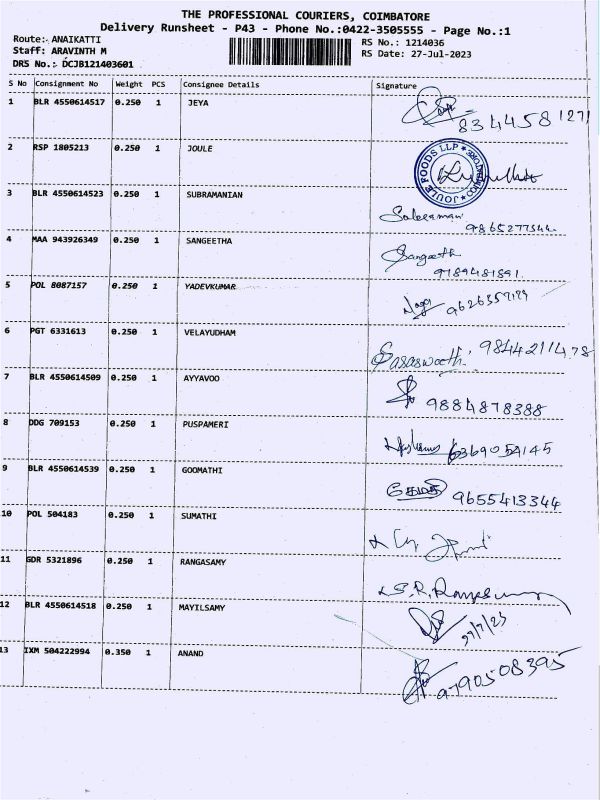 THE PROFESSIONAL COURIERS, COIMBATORE
Delivery Runsheet - P43 - Phone No.:0422-3505555 - Page No.:1
Route: ANAIKATTI
RS No.: 1214036
Staff: ARAVINTH M
RS Date: 27-Jul-2023
DRS No.: DCJB121403601
S No Consignment No Weight PCS Consignee Details Signature
1 BLR 4550614517 0.250 1 JEYA
834458 1271
2 RSP 1805213 0.250 1 JOULE
JOULE FOODS LLP
3 BLR 4550614523 0.250 1 SUBRAMANIAN
9865277344
4 MAA 943926349 0.250 1 SANGEETHA
Sangeeth
9789481891
5 POL 8087157 0.250 1 YADEVKUMAR
Naga
6 PGT 6331613 0.250 1 VELAYUDHAM
Sasaswathi 9844211478
7 BLR 4550614509 0.250 1 AYYAVOO
9884878388
8 DDG 709153 0.250 1 PUSPAMERI
6369054145
9 BLR 4550614539 0.250 1 GOOMATHI
கோமதி 9655413344
10 POL 504183 0.250 1 SUMATHI
11 GDR 5321896 0.250 1 RANGASAMY
S.R.
12 BLR 4550614518 0.250 1 MAYILSAMY
27/7/23
13 IXM 504222994 0.350 1 ANAND
9790508395